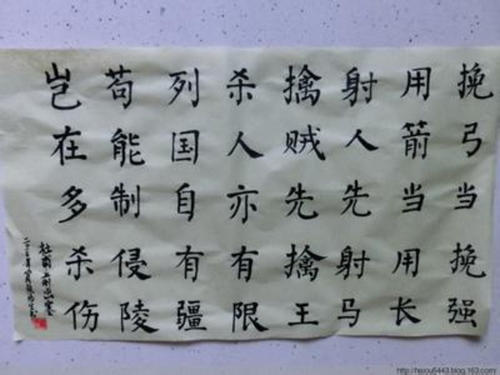 挽弓当挽强
用箭当用长
射人先射马
擒贼先擒王
杀人亦有限
列国自有疆
苟能制侵陵
岂在多杀伤
杜甫前出塞